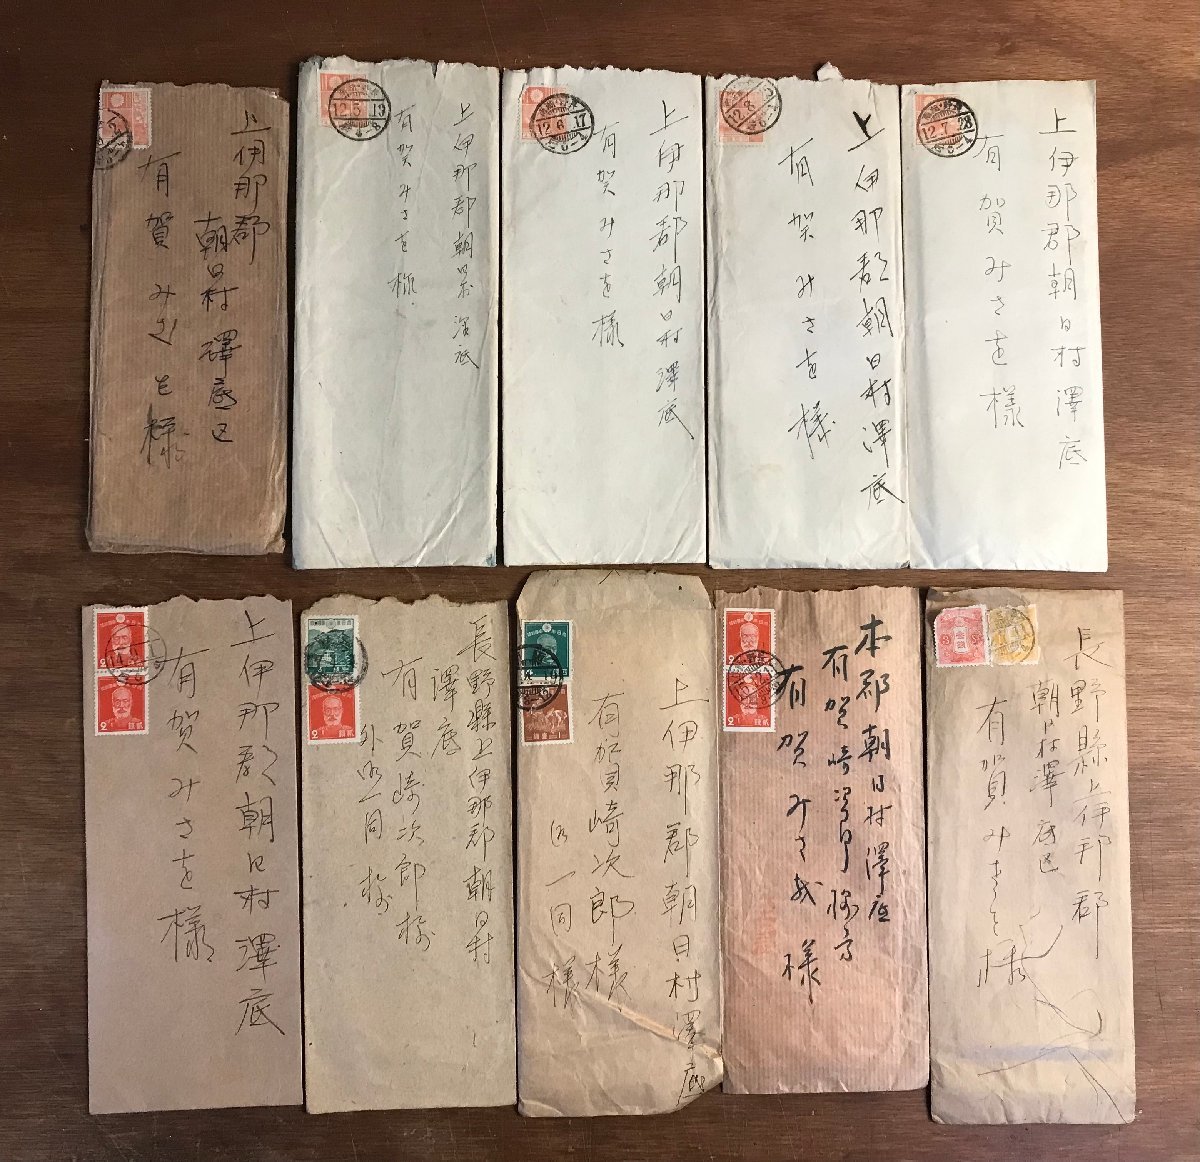 上伊那郡
朝日村澤底区
有賀みさを様
12.5.13
上伊那郡朝日村澤底
有賀みさを様
12.6.17
上伊那郡朝日村澤底
有賀みさを様
12.8
上伊那郡朝日村澤底
有賀みさを様
12.7.28
上伊那郡朝日村澤底
有賀みさを様
上伊那郡朝日村澤底
有賀みさを様
長野縣上伊那郡朝日村
澤底
有賀崎次郎様
外一同様
上伊那郡朝日村澤底
有賀崎次郎様
一同様
本郡朝日村澤底
有賀崎
有賀みさ様
長野縣上伊那郡
朝日村澤底区
有賀みさを様